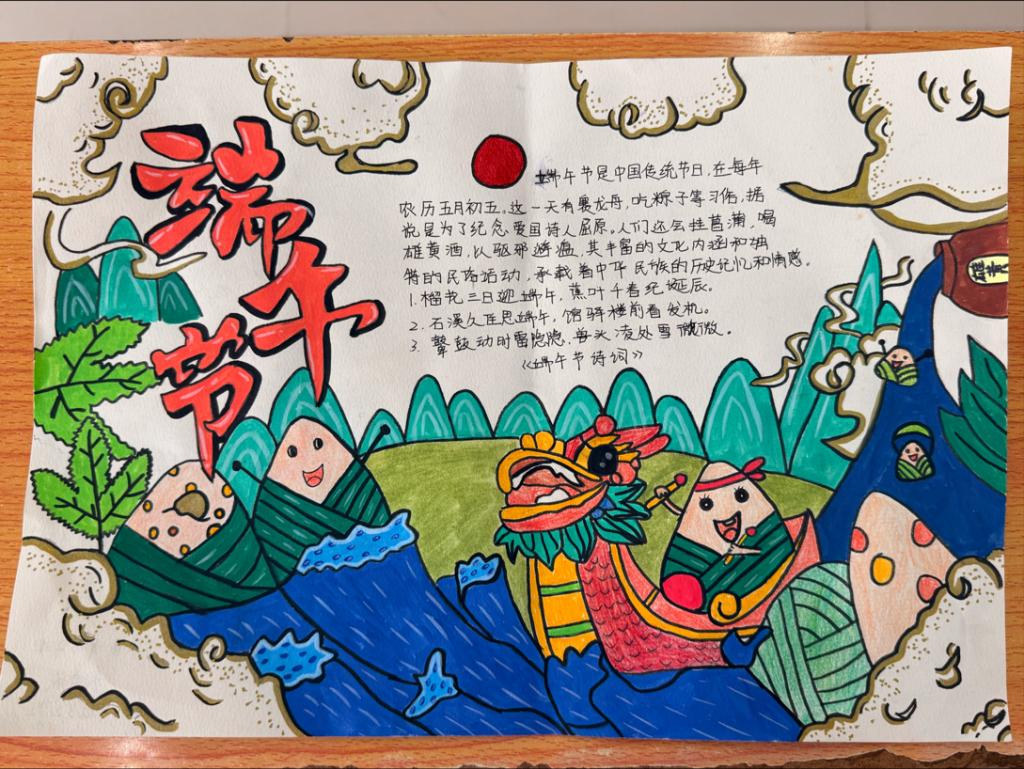 端午节
端午节是中国传统节日,在每年
农历五月初五。这一天有赛龙舟,吃粽子等习俗,据
说是为了纪念爱国诗人屈原。人们还会挂菖蒲,喝
雄黄酒,以驱邪避瘟,其丰富的文化内涵和独
特的民俗活动,承载着中华民族的历史记忆和情感。
1.榴花三日迎端午,蕉叶千春纪诞辰。
2.石溪久住思端午,馆驿楼前看发机。
3.鼙鼓动时雷隐隐,兽头凌处雪微微。
《端午节诗词》
雄黄